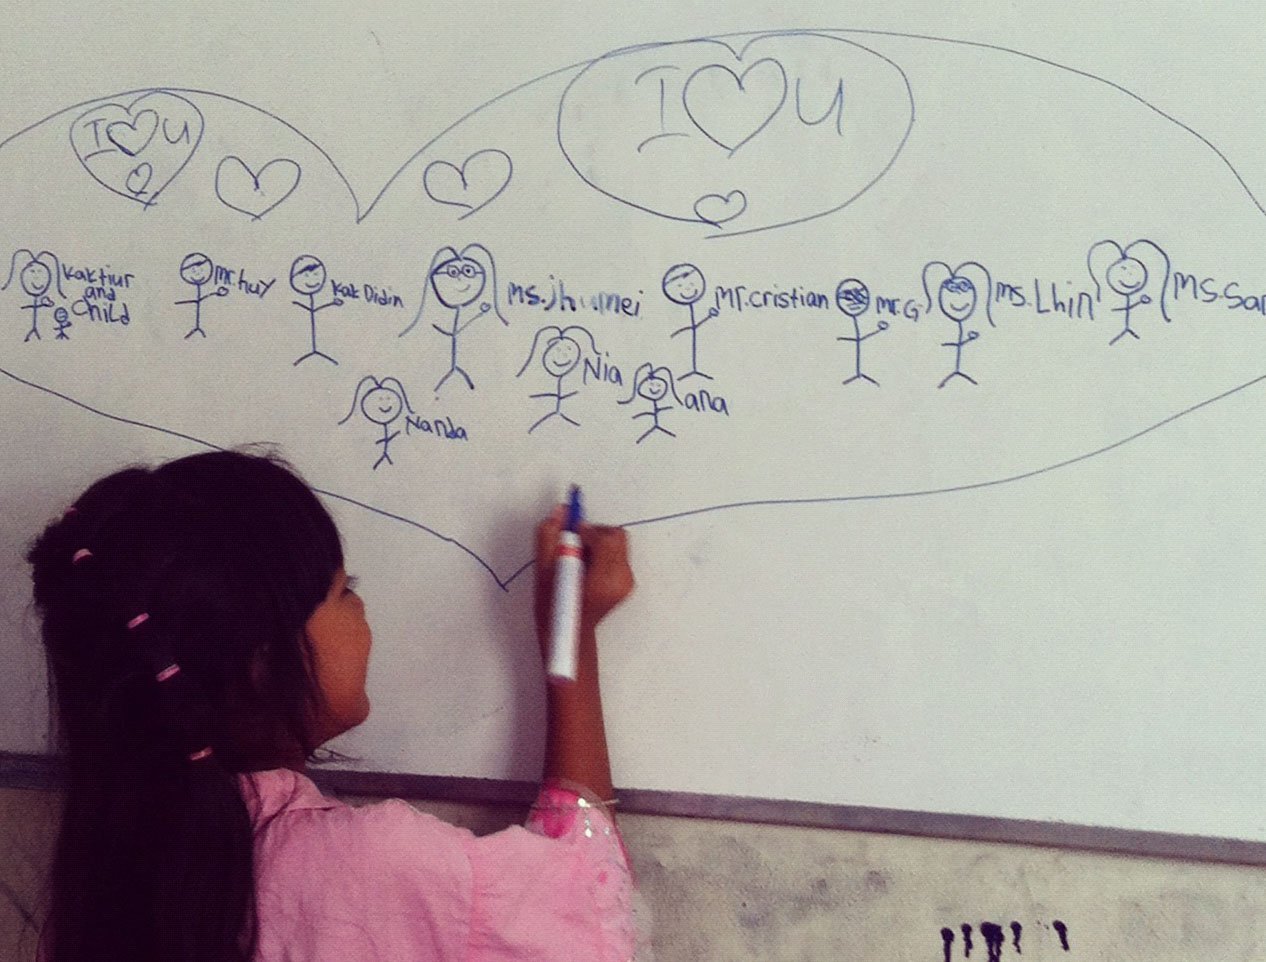 I ♡ U
I ♡ U
Kaktiur
and
Child
mr.huy
Kak Didin
ms.jhumei
Mr.cristian
mr.G
ms.Lhin
MS.Sar
Nia
ana
Nanda